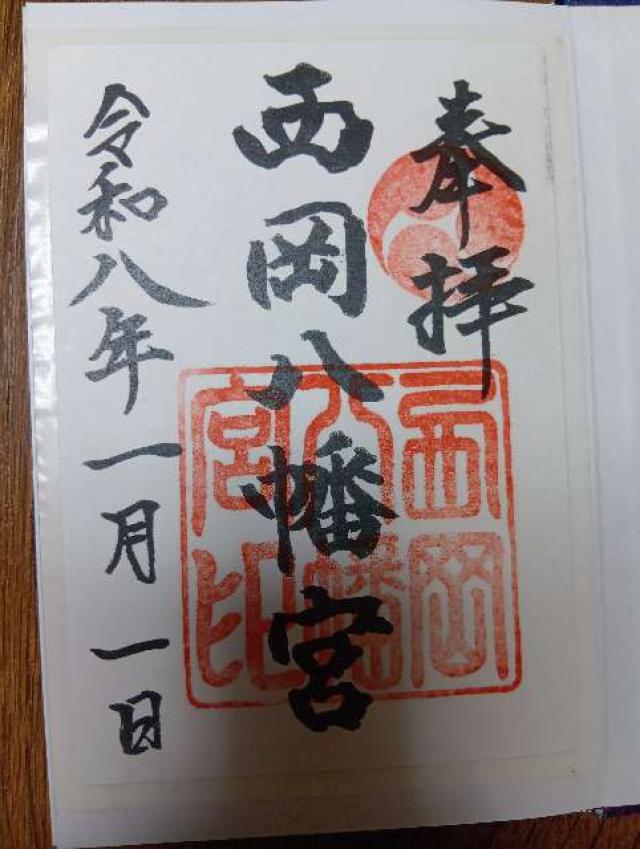 奉拝
西岡八幡宮
西岡八幡宮印
令和八年一月一日